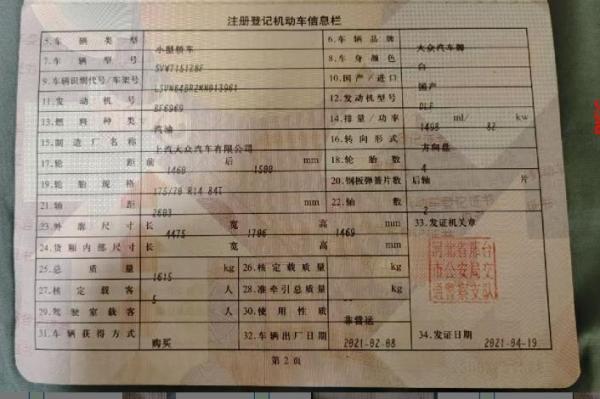 注册登记机动车信息栏
5.车辆类型 小型轿车 6.车辆品牌 大众汽车牌
7.车辆型号 SVW71512BF 8.车身颜色 白
9.车辆识别代号/车架号 10.国产/进口 国产
11.发动机号 BF6969 12.发动机型号 DLF
13.燃料种类 汽油 14.排量/功率 1498 ml/ 82 kw
15.制造厂名称 上汽大众汽车有限公司 16.转向形式 方向盘
17.轮距 前 1460 后 1500 mm 18.轮胎数 4
19.轮胎规格 175/70 R14 84T 20.钢板弹簧片数 后轴 片
21.轴距 2603 mm 22.轴数 2
23.外廓尺寸 长 4475 宽 1706 高 1469 mm 33.发证机关章
24.货厢内部尺寸 长 宽 高 mm
河北省邢台
市公安局交
通警察支队
25.总质量 1615 kg 26.核定载质量 kg
27.核定载客 5 人 28.准牵引总质量 kg
29.驾驶室载客 人 30.使用性质 非营运
31.车辆获得方式 购买 32.车辆出厂日期 2021-02-08 34.发证日期 2021-04-19
第2页